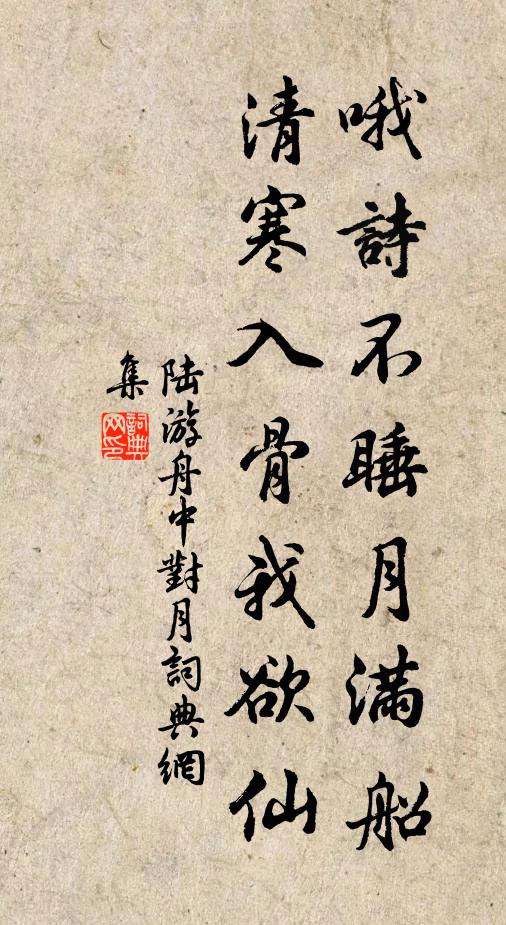 哦詩不睡月滿船
清寒入骨我欲仙
陆游舟中對月詞典網
集
詞典
网印